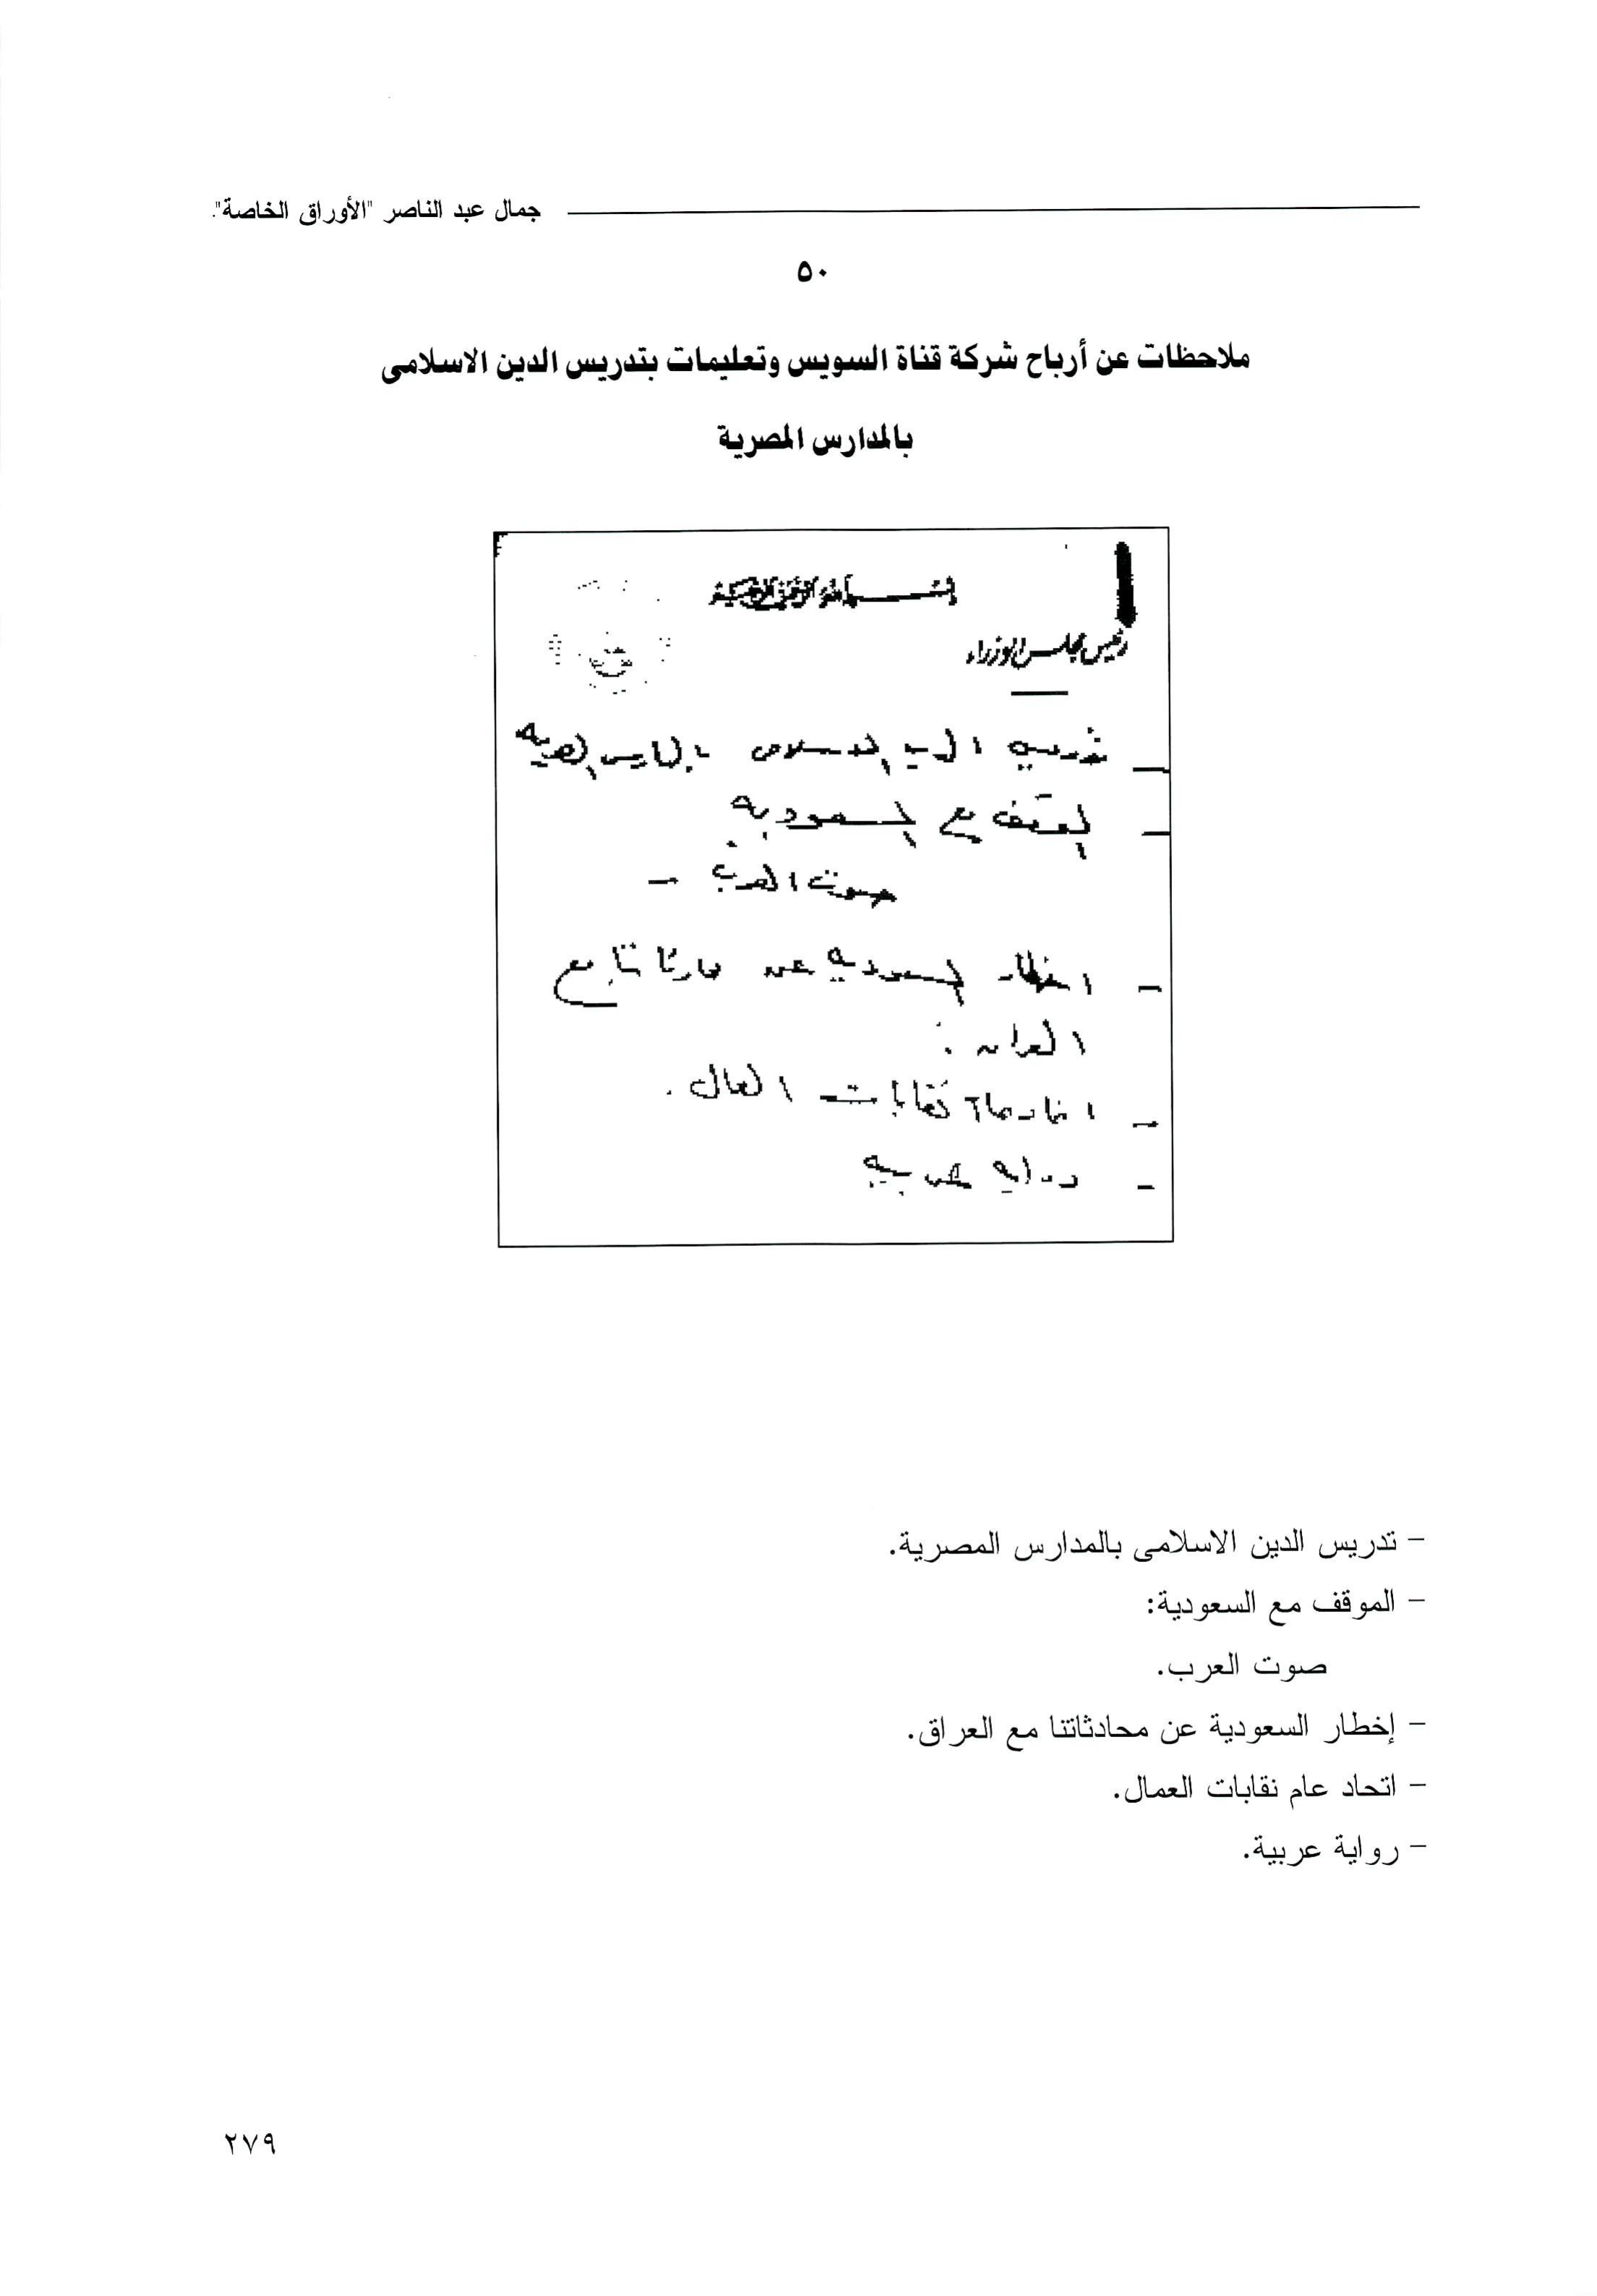 جمال عبد الناصر "الأوراق الخاصة".
٥٠
ملاحظات عن أرباح شركة قناة السويس وتعليمات بتدريس الدين الاسلامى
بالمدارس المصرية
بسم الله الرحمن الرحيم
رئيس مجلس الوزراء
— تدريس الدين الاسلامى بالمدارس المصرية
— الموقف مع السعودية :
صوت العرب —
— اخطار السعودية عن محادثاتنا مع
العراق .
— اتحاد عام نقابات العمال .
— رواية عربية
– تدريس الدين الاسلامى بالمدارس المصرية.
– الموقف مع السعودية:
صوت العرب.
– إخطار السعودية عن محادثاتنا مع العراق.
– اتحاد عام نقابات العمال.
– رواية عربية.
٢٧٩